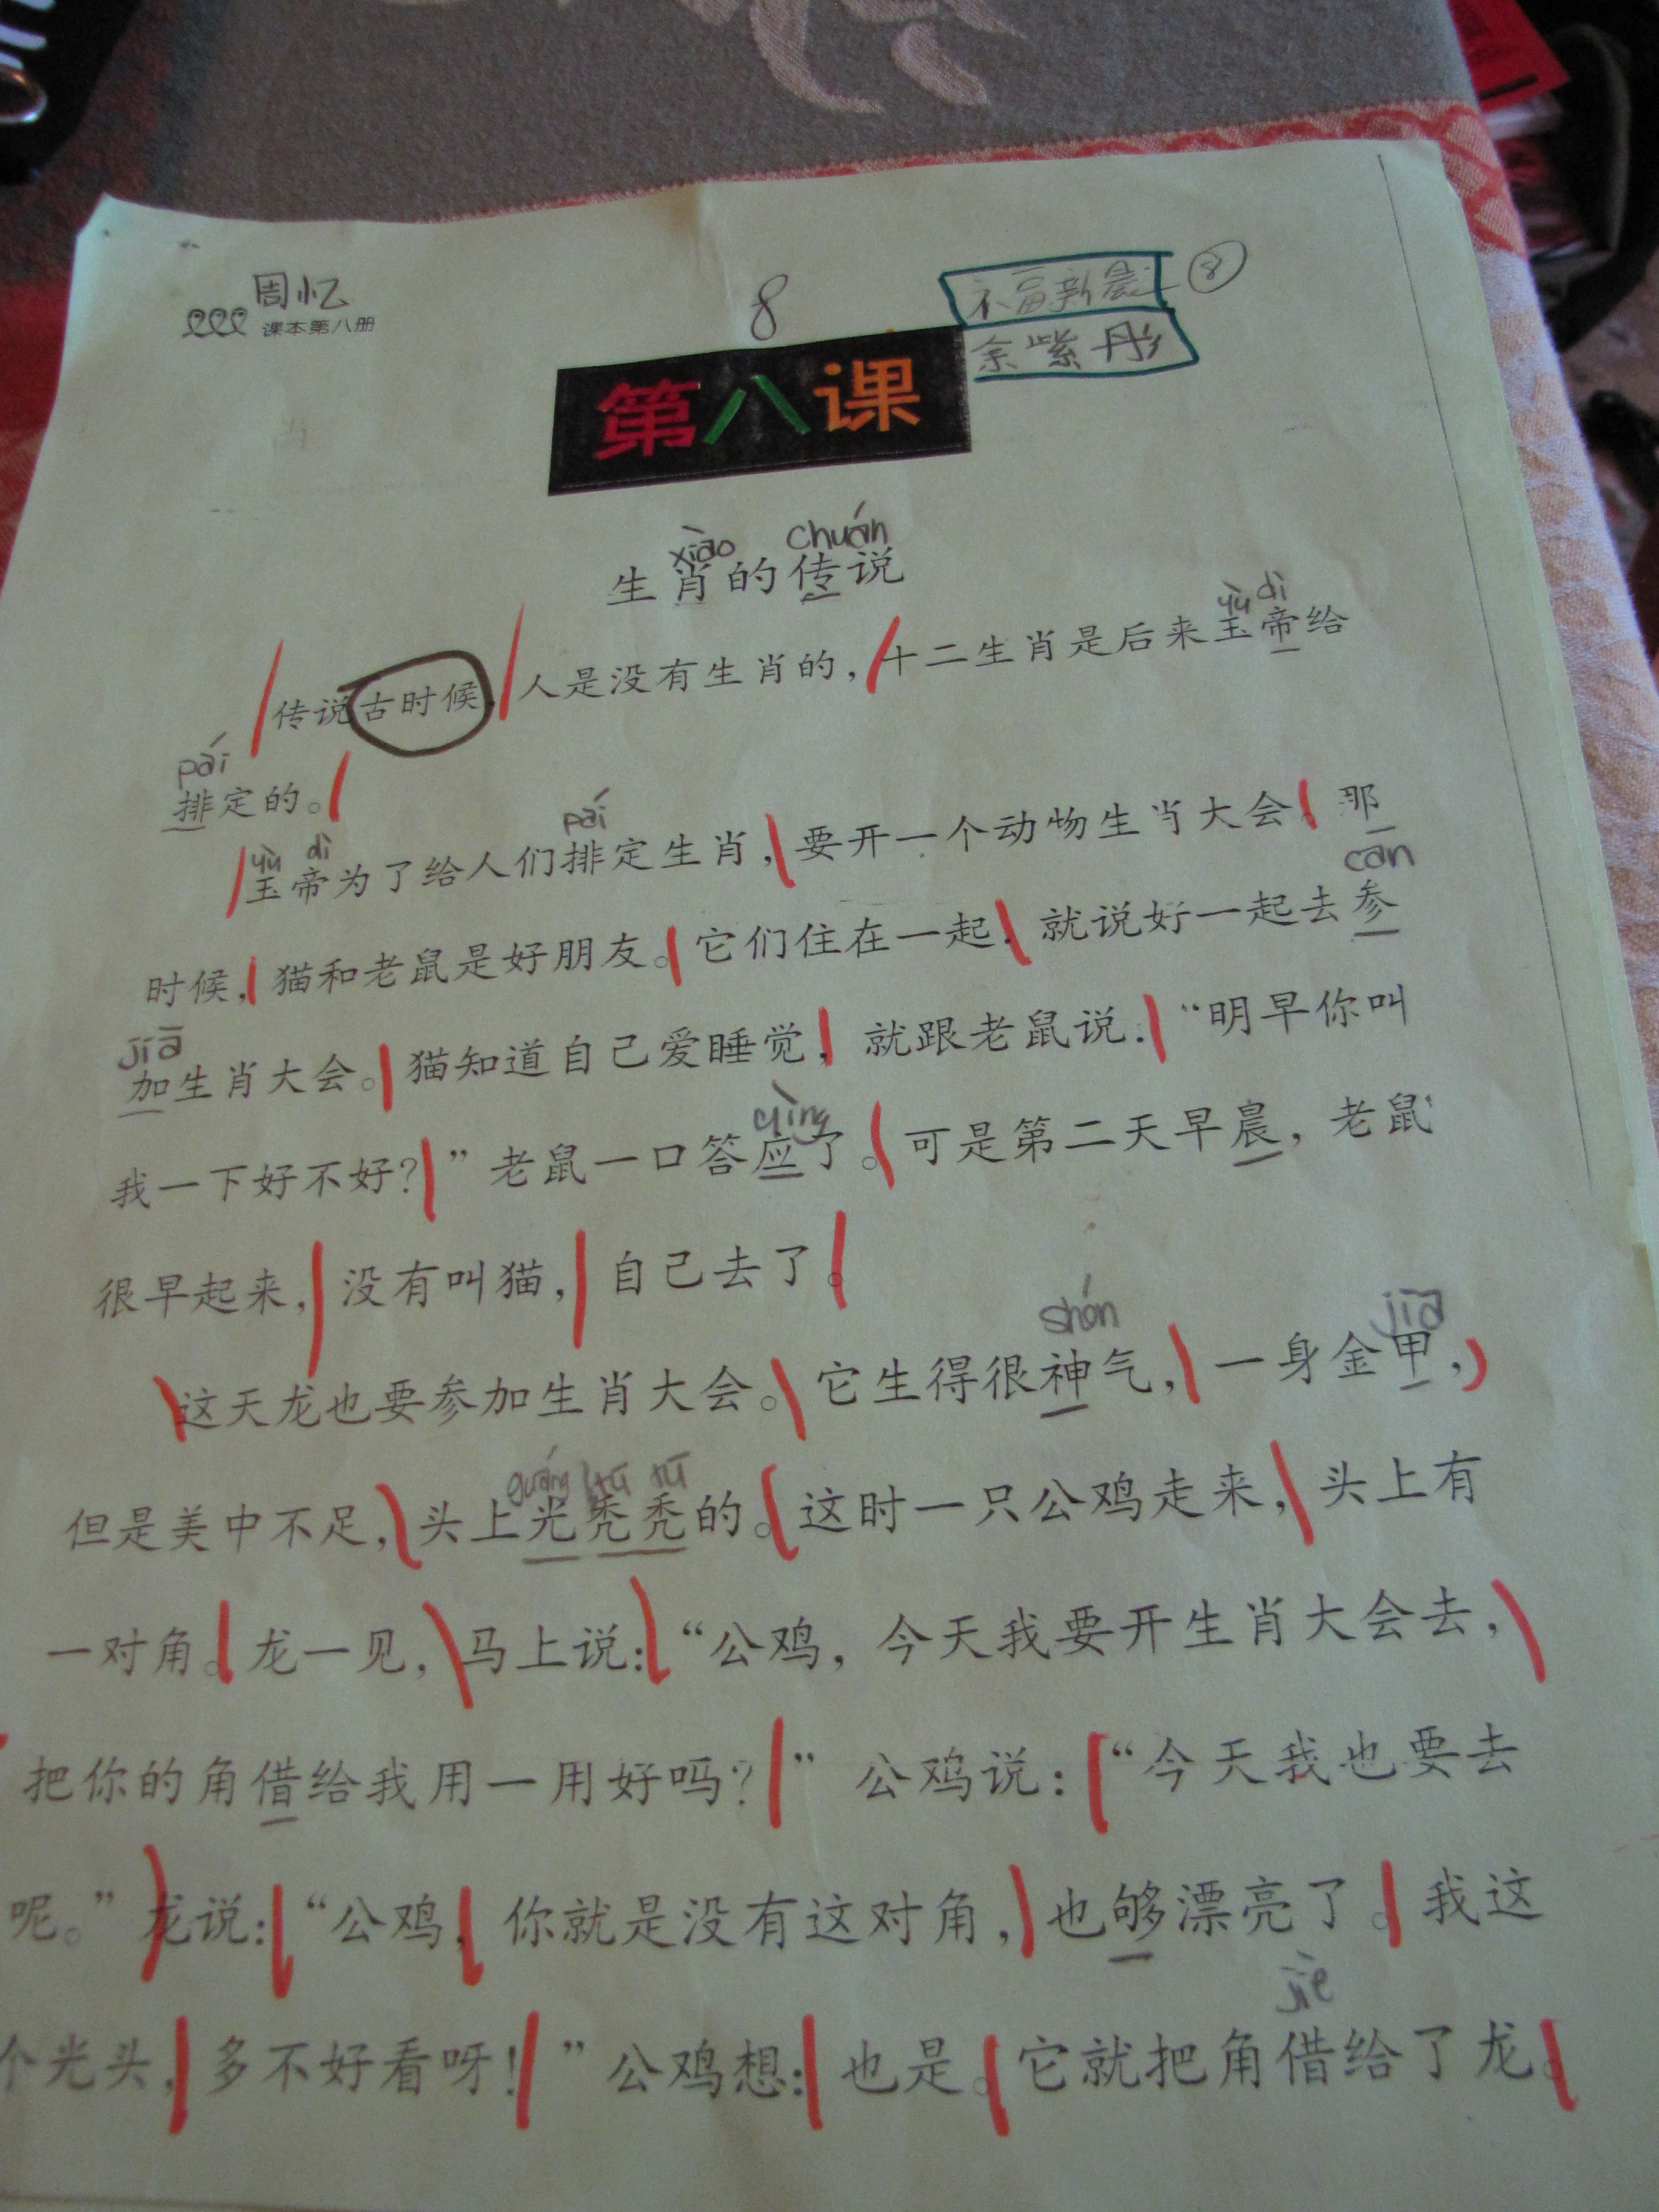 周忆
课本第八册
8
⑧
余紫彤
第八课
xiào chuán
生肖的传说
yù dì
传说古时候，人是没有生肖的，十二生肖是后来玉帝给
pái
排定的。
yù dì pái
玉帝为了给人们排定生肖，要开一个动物生肖大会。那
cān
时候，猫和老鼠是好朋友。它们住在一起，就说好一起去参
jiā
加生肖大会。猫知道自己爱睡觉，就跟老鼠说：“明早你叫
yìng
我一下好不好？”老鼠一口答应了。可是第二天早晨，老鼠
很早起来，没有叫猫，自己去了。
shén jiǎ
这天龙也要参加生肖大会。它生得很神气，一身金甲，
tū tū
但是美中不足，头上光秃秃的。这时一只公鸡走来，头上有
一对角。龙一见，马上说：“公鸡，今天我要开生肖大会去，
把你的角借给我用一用好吗？”公鸡说：“今天我也要去
呢。”龙说：“公鸡，你就是没有这对角，也够漂亮了。我这
jiè
个光头，多不好看呀！”公鸡想：也是。它就把角借给了龙。